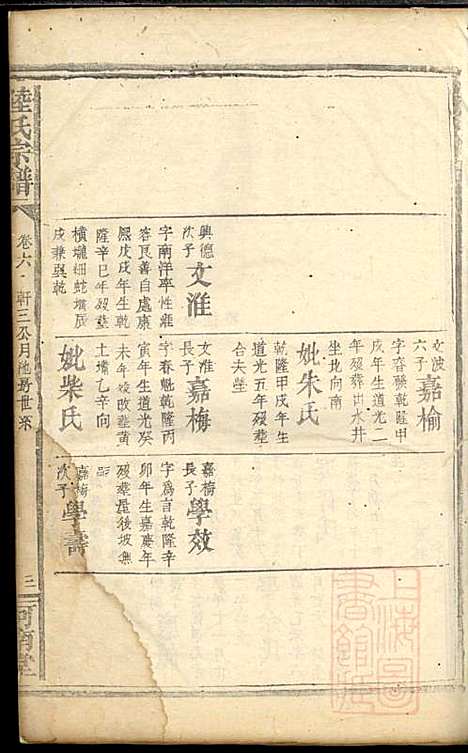 陸氏宗譜
卷六
軒三公月池房世系
三
河南堂
興德
次子
文淮
字南洋率性雍
容良善自處康
熙戊戌年生乾
隆辛巳年歿葬
橫壠細蛇墳辰
戌兼巽乾
文波
六子
嘉榆
字春
乾隆甲
戌年生道光二
年歿葬出水井
坐北向南
妣朱氏
乾隆甲戌年生
道光五年歿葬
合夫塋
文淮
長子
嘉梅
字春魁乾隆丙
寅年生道光癸
未年歿改葬黃
土墈乙辛向
妣柴氏
嘉梅
長子
學效
字為言乾隆辛
卯年生嘉慶年
歿葬屋後坡無
嘉梅
次子
學壽
上海圖書館藏